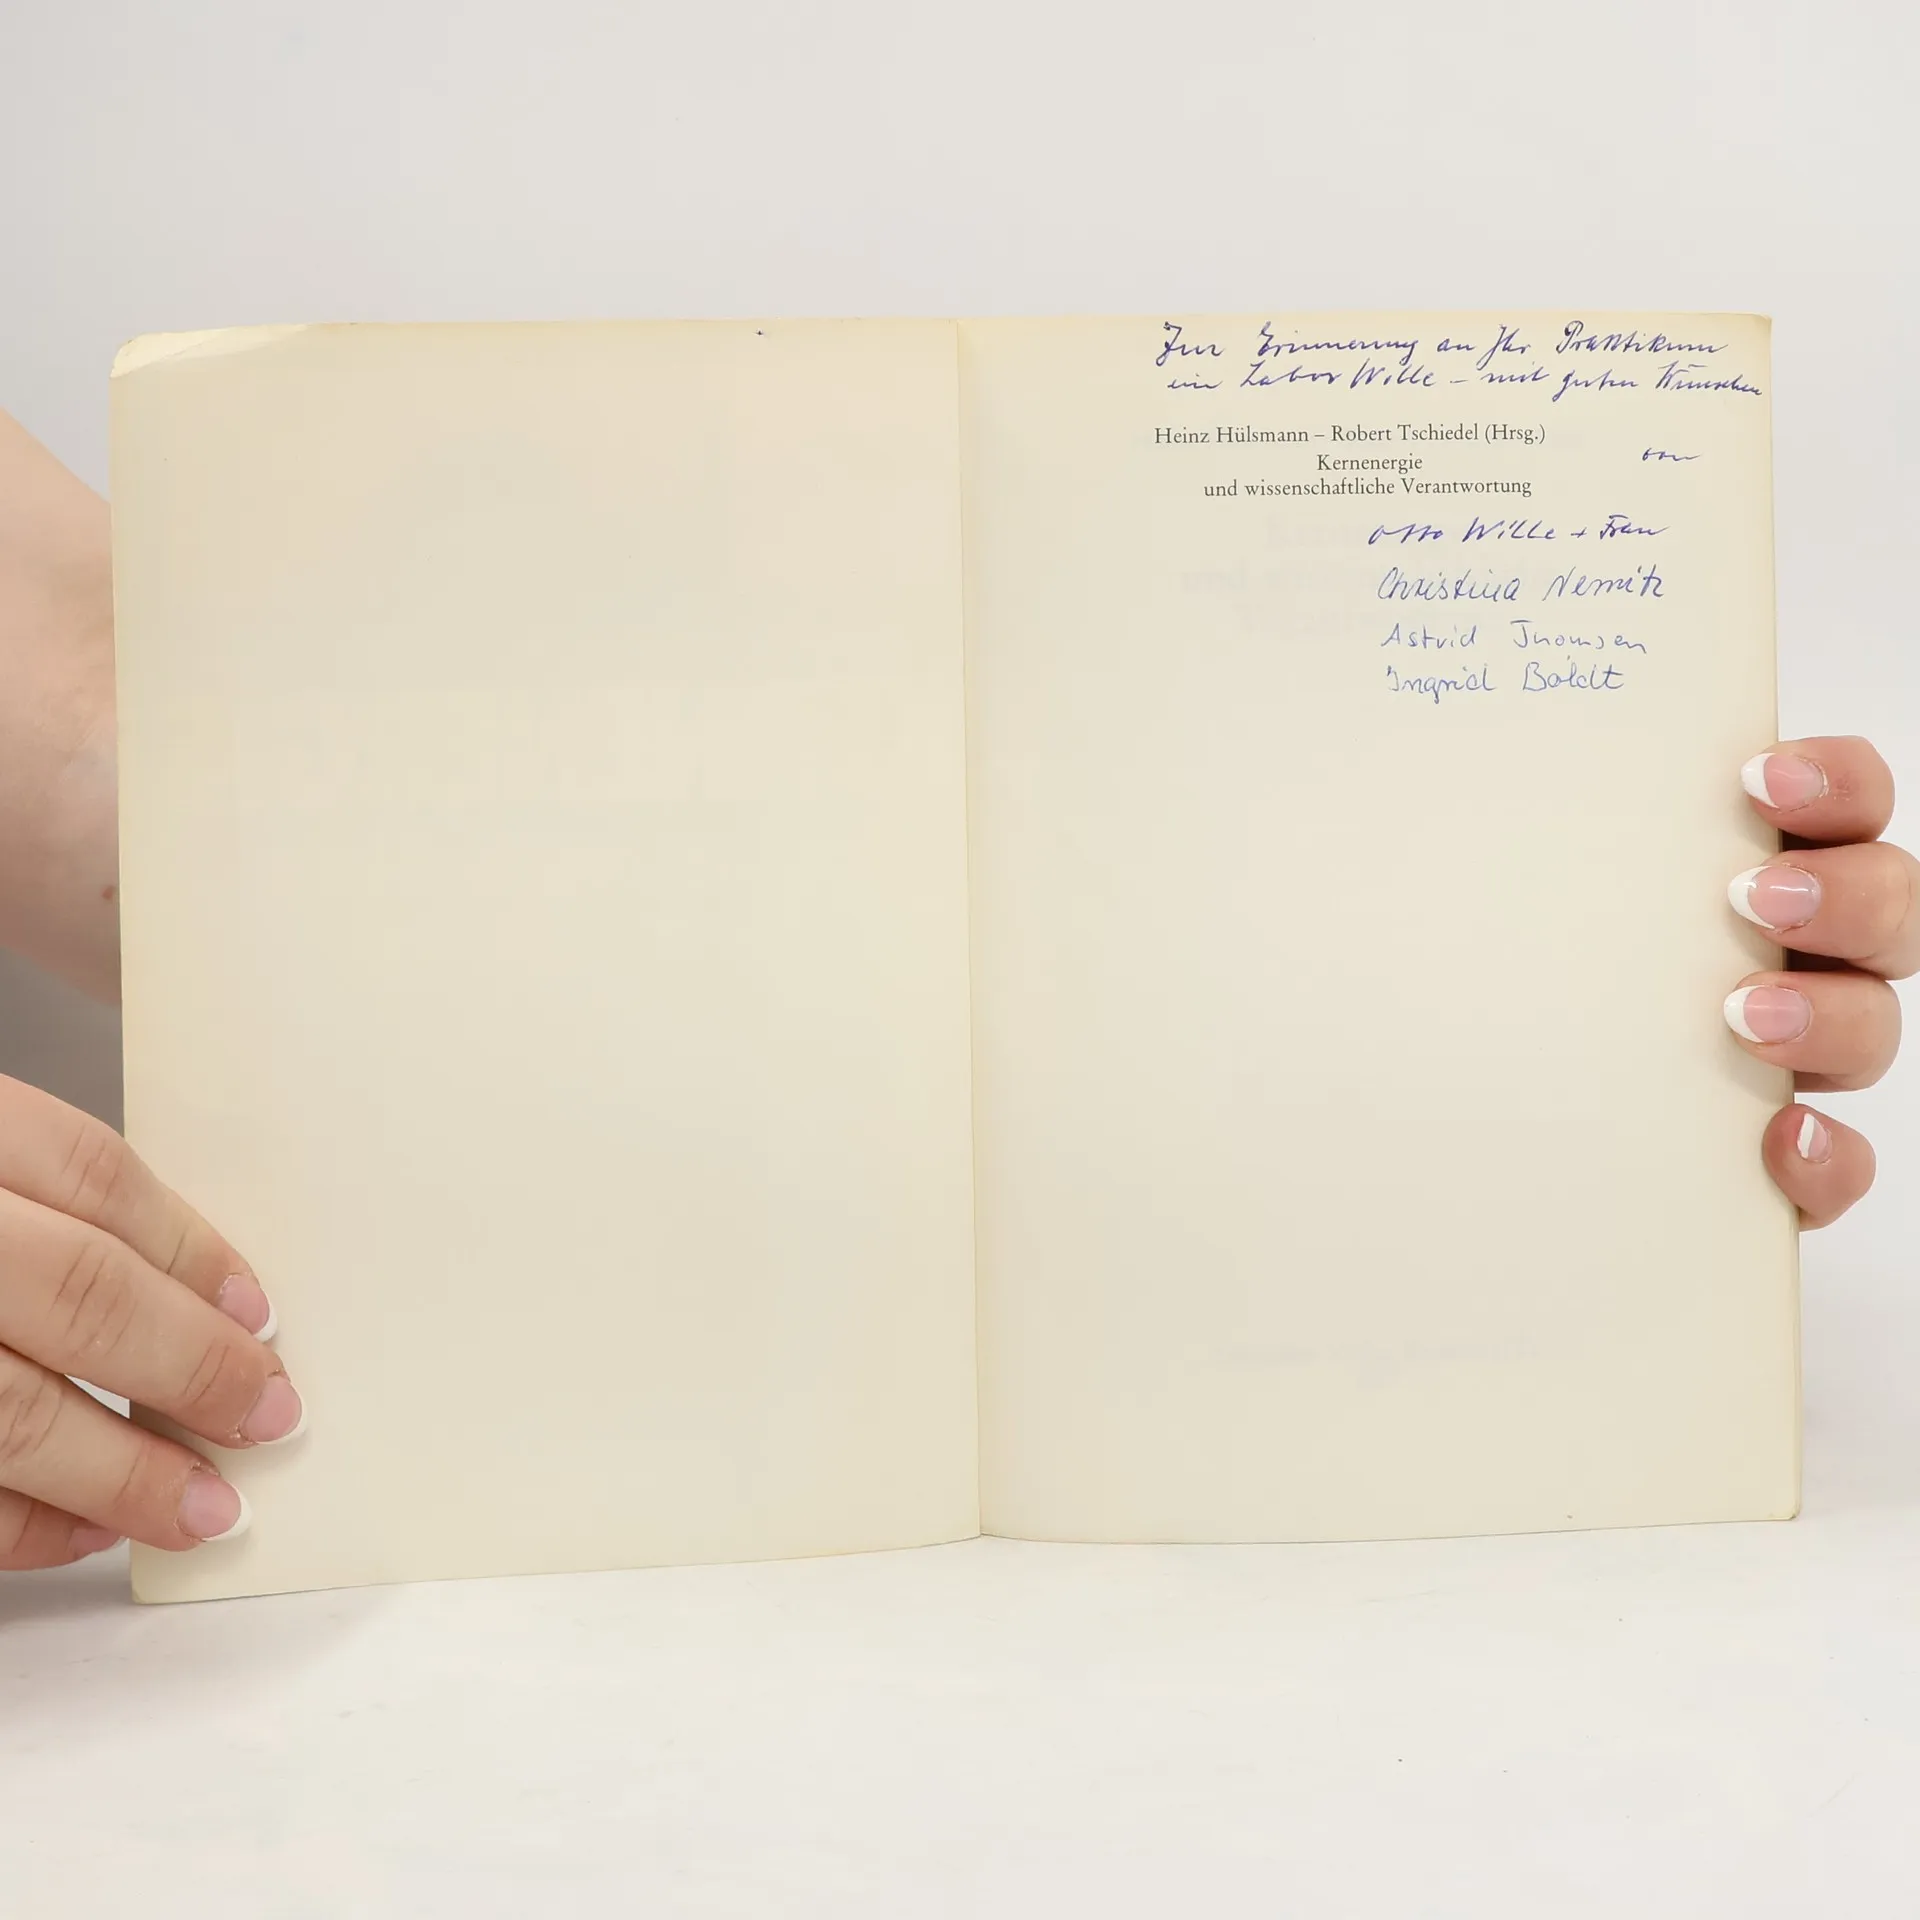 Zur Erinnerung an Ihr Praktikum
im Labor Wille – mit guten Wünschen
Heinz Hülsmann – Robert Tschiedel (Hrsg.)
von
Kernenergie
und wissenschaftliche Verantwortung
Otto Wille + Frau
Christina Nemitz
Astrid Thomsen
Ingrid Boldt